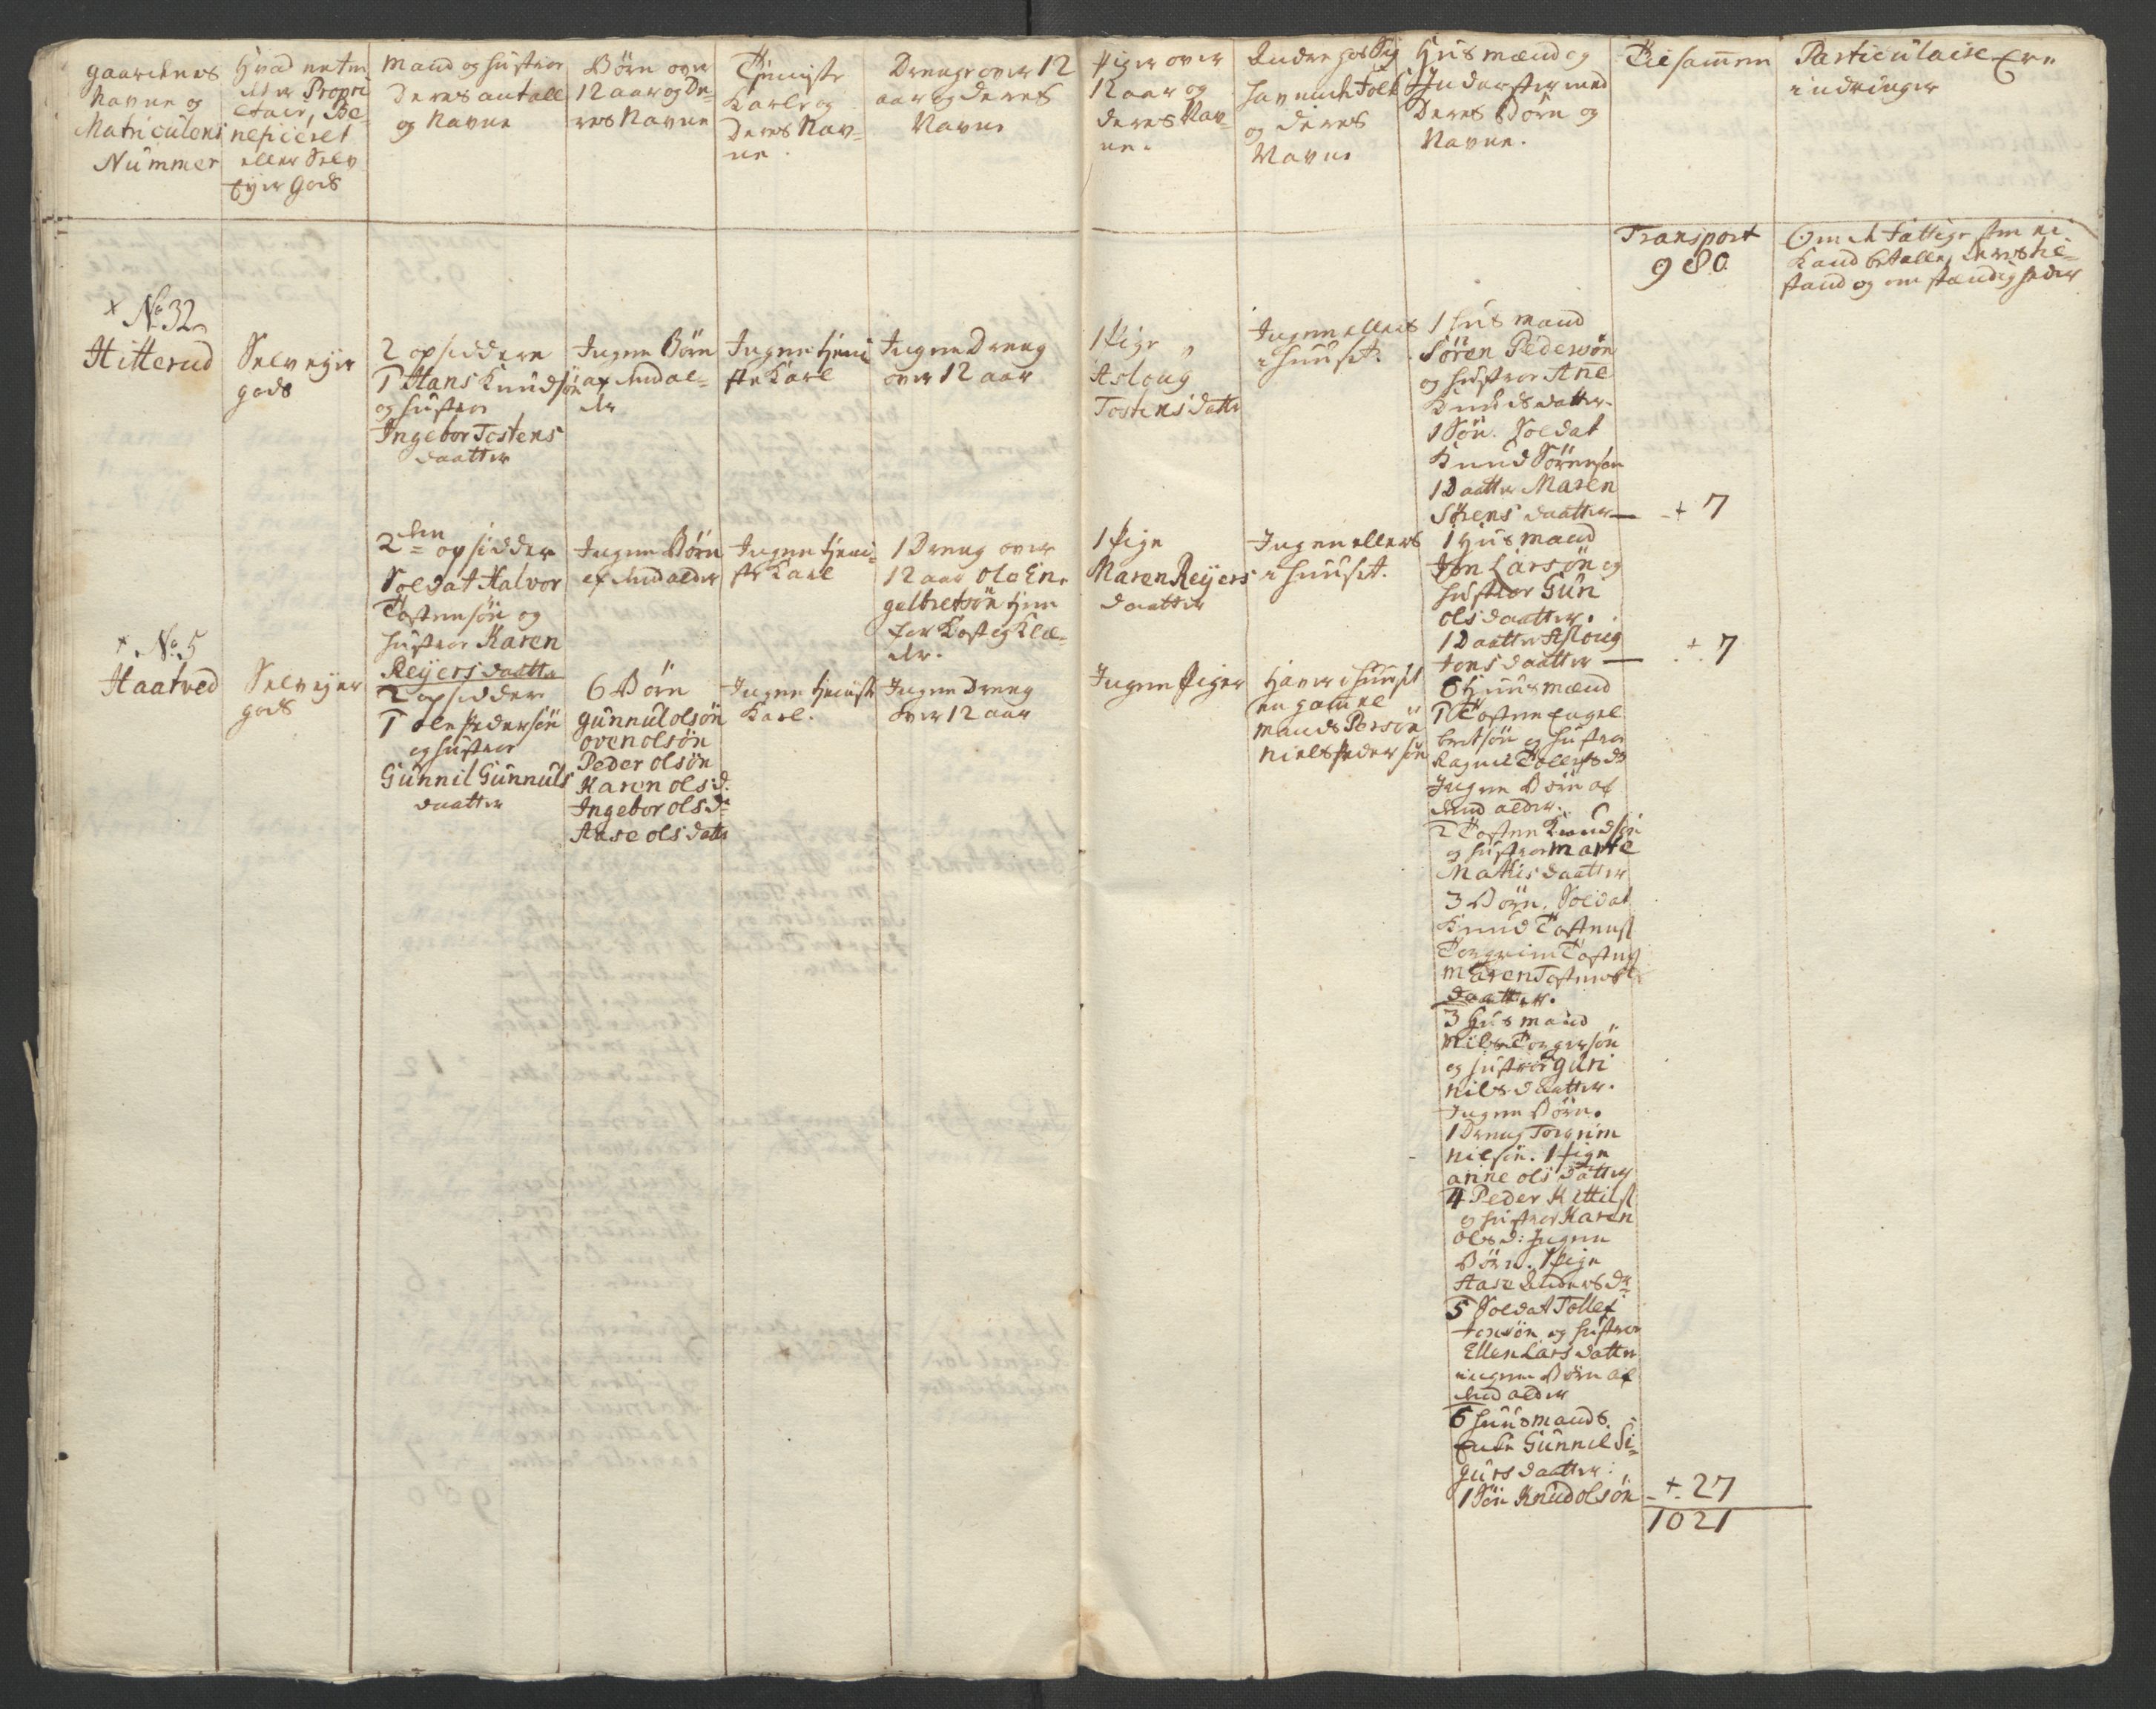 gaardenes
Navne og
Matriculens
Nummer
Hvad enten
det er Propri
etair, Be-
neficeret
eller Selv
Eyer Gods
Mand og Hustroe
Deres antall
og Navne
Børn over
12 aar og De-
res Navne
Tieniste
Karle og
Deres Nav-
ne.
Drenge over 12
aar og deres
Navne
Piger over
12 aar og
deres Nav-
ne.
Andre hos Sig
havende Folk
og deres
Navne
Huusmænd og
Inderster med
Deres Børn og
Navne.
Tilsammen
Particulaire Er-
indringer
Transport
980
Om de fattige som ei
kand betalle, deres til-
stand og omstændigheder
+ No 32
Hitterud
Selv eyer
gods
2 opsiddere
1 Hans Knudsøn
og hustroe
Ingebor Tostens
daatter
Ingen Børn
af dend al-
der
Ingen tieni
ste Karl
Ingen Dreng
over 12 aar
1 Pige
Asloug
Tostens datter
Ingen ellers
i huuset.
1 Husmand
Søren Pedersøn
og hustroe Ane
Knuds datter.
1 Søn. Soldat
Knud Sørensøn
1 Daatter Maren
Sørens daatter —
+ 7
2den opsidder
Soldat Halvor
Tostensøn og
hustroe Karen
Reijers daatter
Ingen Børn
af dend alder
Ingen tieni-
ste Karl
1 Dreng over
12 aar Ole En-
gelbretsøn tien
for Kost og Klæ-
der.
1 Pige
Maren Reijers
daatter
Ingen ellers
i huuset.
1 Husmand
Jon Larsøn og
hustroe Gun
ols daatter.
1 Daatter Asloug
Jons daatter —
+ 7
+ No 5
Haatved
Selv eyer
gods
2 opsidder
1 ole Pedersøn
og hustroe
Gunnil Gunnuls
daatter
6 Børn
gunnul olsøn
oven olsøn
Peder olsøn
Karen ols d:
Ingebor ols dr
Aase ols datter
Ingen tieniste
Karl.
Ingen Dreng
over 12 aar
Ingen Piger
Haver i huuset
en gammel
mands Persøn
Niels Pedersøn
6 Huusmænd
1 Tosten Engel
bretsøn og hustroe
Ragnil Tollefs dr
Ingen Børn af
dend alder.
2 Tosten Knudsøn
og hustroe Marte
Mathis daatter
3 Børn, Soldat
Knud Tostens
Torgrim Tostens
Maren Tostens
daatter.
3 Husmand
Nils Torgersøn
og hustroe guri
nils daatter.
Ingen Børn.
1 Dreng Torgrim
Nilsøn. 1 Pige
anne ols datter
4 Peder Kittils
og hustroe Karen
ols d: Ingen
Børn. 1 Pige
Aase Anders dr
5 Soldat Tollef
Jonsøn og hustroe
Ellen Lars datter
ingen Børn af
dend alder
6 huusmands
Enke Gunnil Si-
gurs daatter:
1 Søn Knud olsøn
+ 27
1021